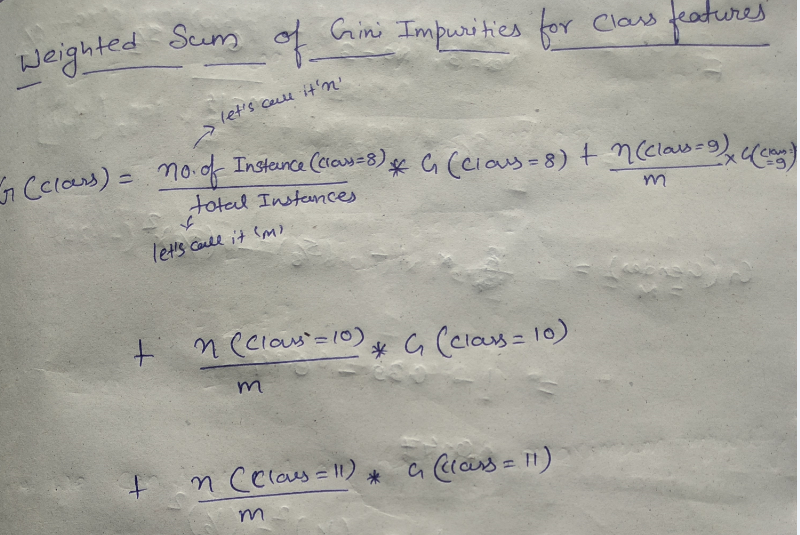 Weighted Sum of Gini Impurities for Class features
let's call it 'n'
G (class) = no. of Instance (class=8) * G (class = 8) + n(class=9) × G(class=9)
total Instances m
let's call it 'm'
+ n (class=10) * G (class = 10)
m
+ n (class = 11) * G (class = 11)
m